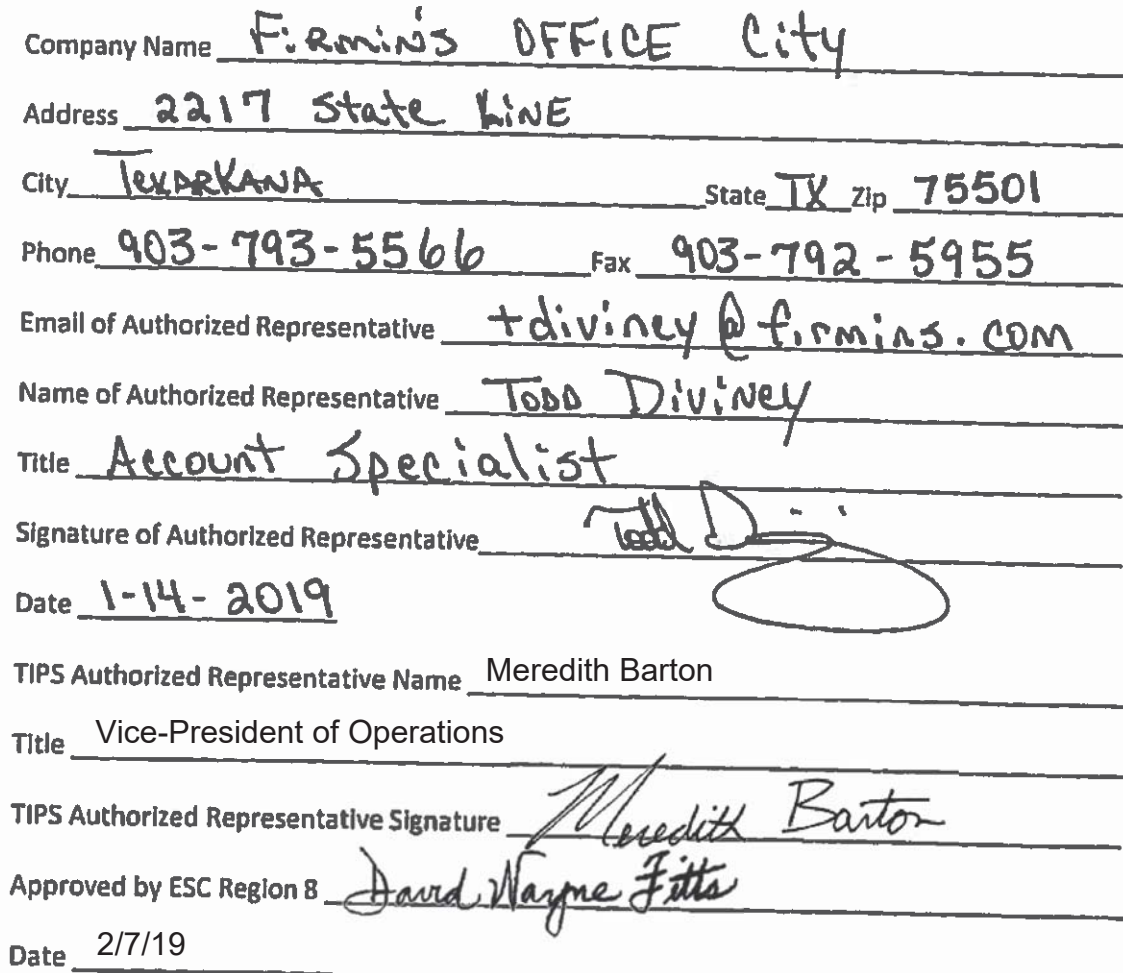 Company Name Firmin's OFFICE City
Address 2217 State LiNE
City TexARKANA State TX Zip 75501
Phone 903-793-5566 Fax 903-792-5955
Email of Authorized Representative tdiviney@firmins.com
Name of Authorized Representative TODD DiviNey
Title Account Specialist
Signature of Authorized Representative Todd
Date 1-14-2019
TIPS Authorized Representative Name Meredith Barton
Title Vice-President of Operations
TIPS Authorized Representative Signature Meredith Barton
Approved by ESC Region 8 David Wayne Fitts
Date 2/7/19